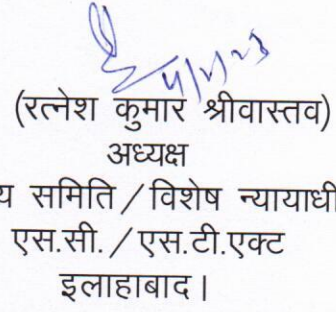 (रत्नेश कुमार श्रीवास्तव)
अध्यक्ष
समिति / विशेष
एस.सी. / एस.टी.एक्ट
इलाहाबाद।